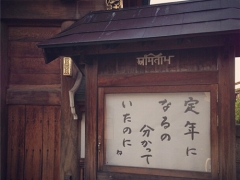 定年に
なるの
分かって
いたのに